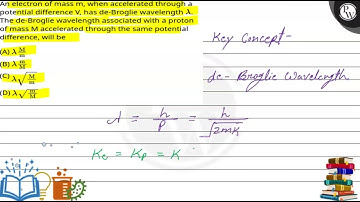 An electron of mass m, when accelerated through a
potential difference V, has de-Broglie wavelength λ.
The de-Broglie wavelength associated with a proton
of mass M accelerated through the same potential
difference, will be
(A) λ M/m
(B) λ m/M
(C) λ √(M/m)
(D) λ √(m/M)
Key Concept -
de - Broglie Wavelength
λ = h/P = h/√(2mK)
Ke = Kp = K